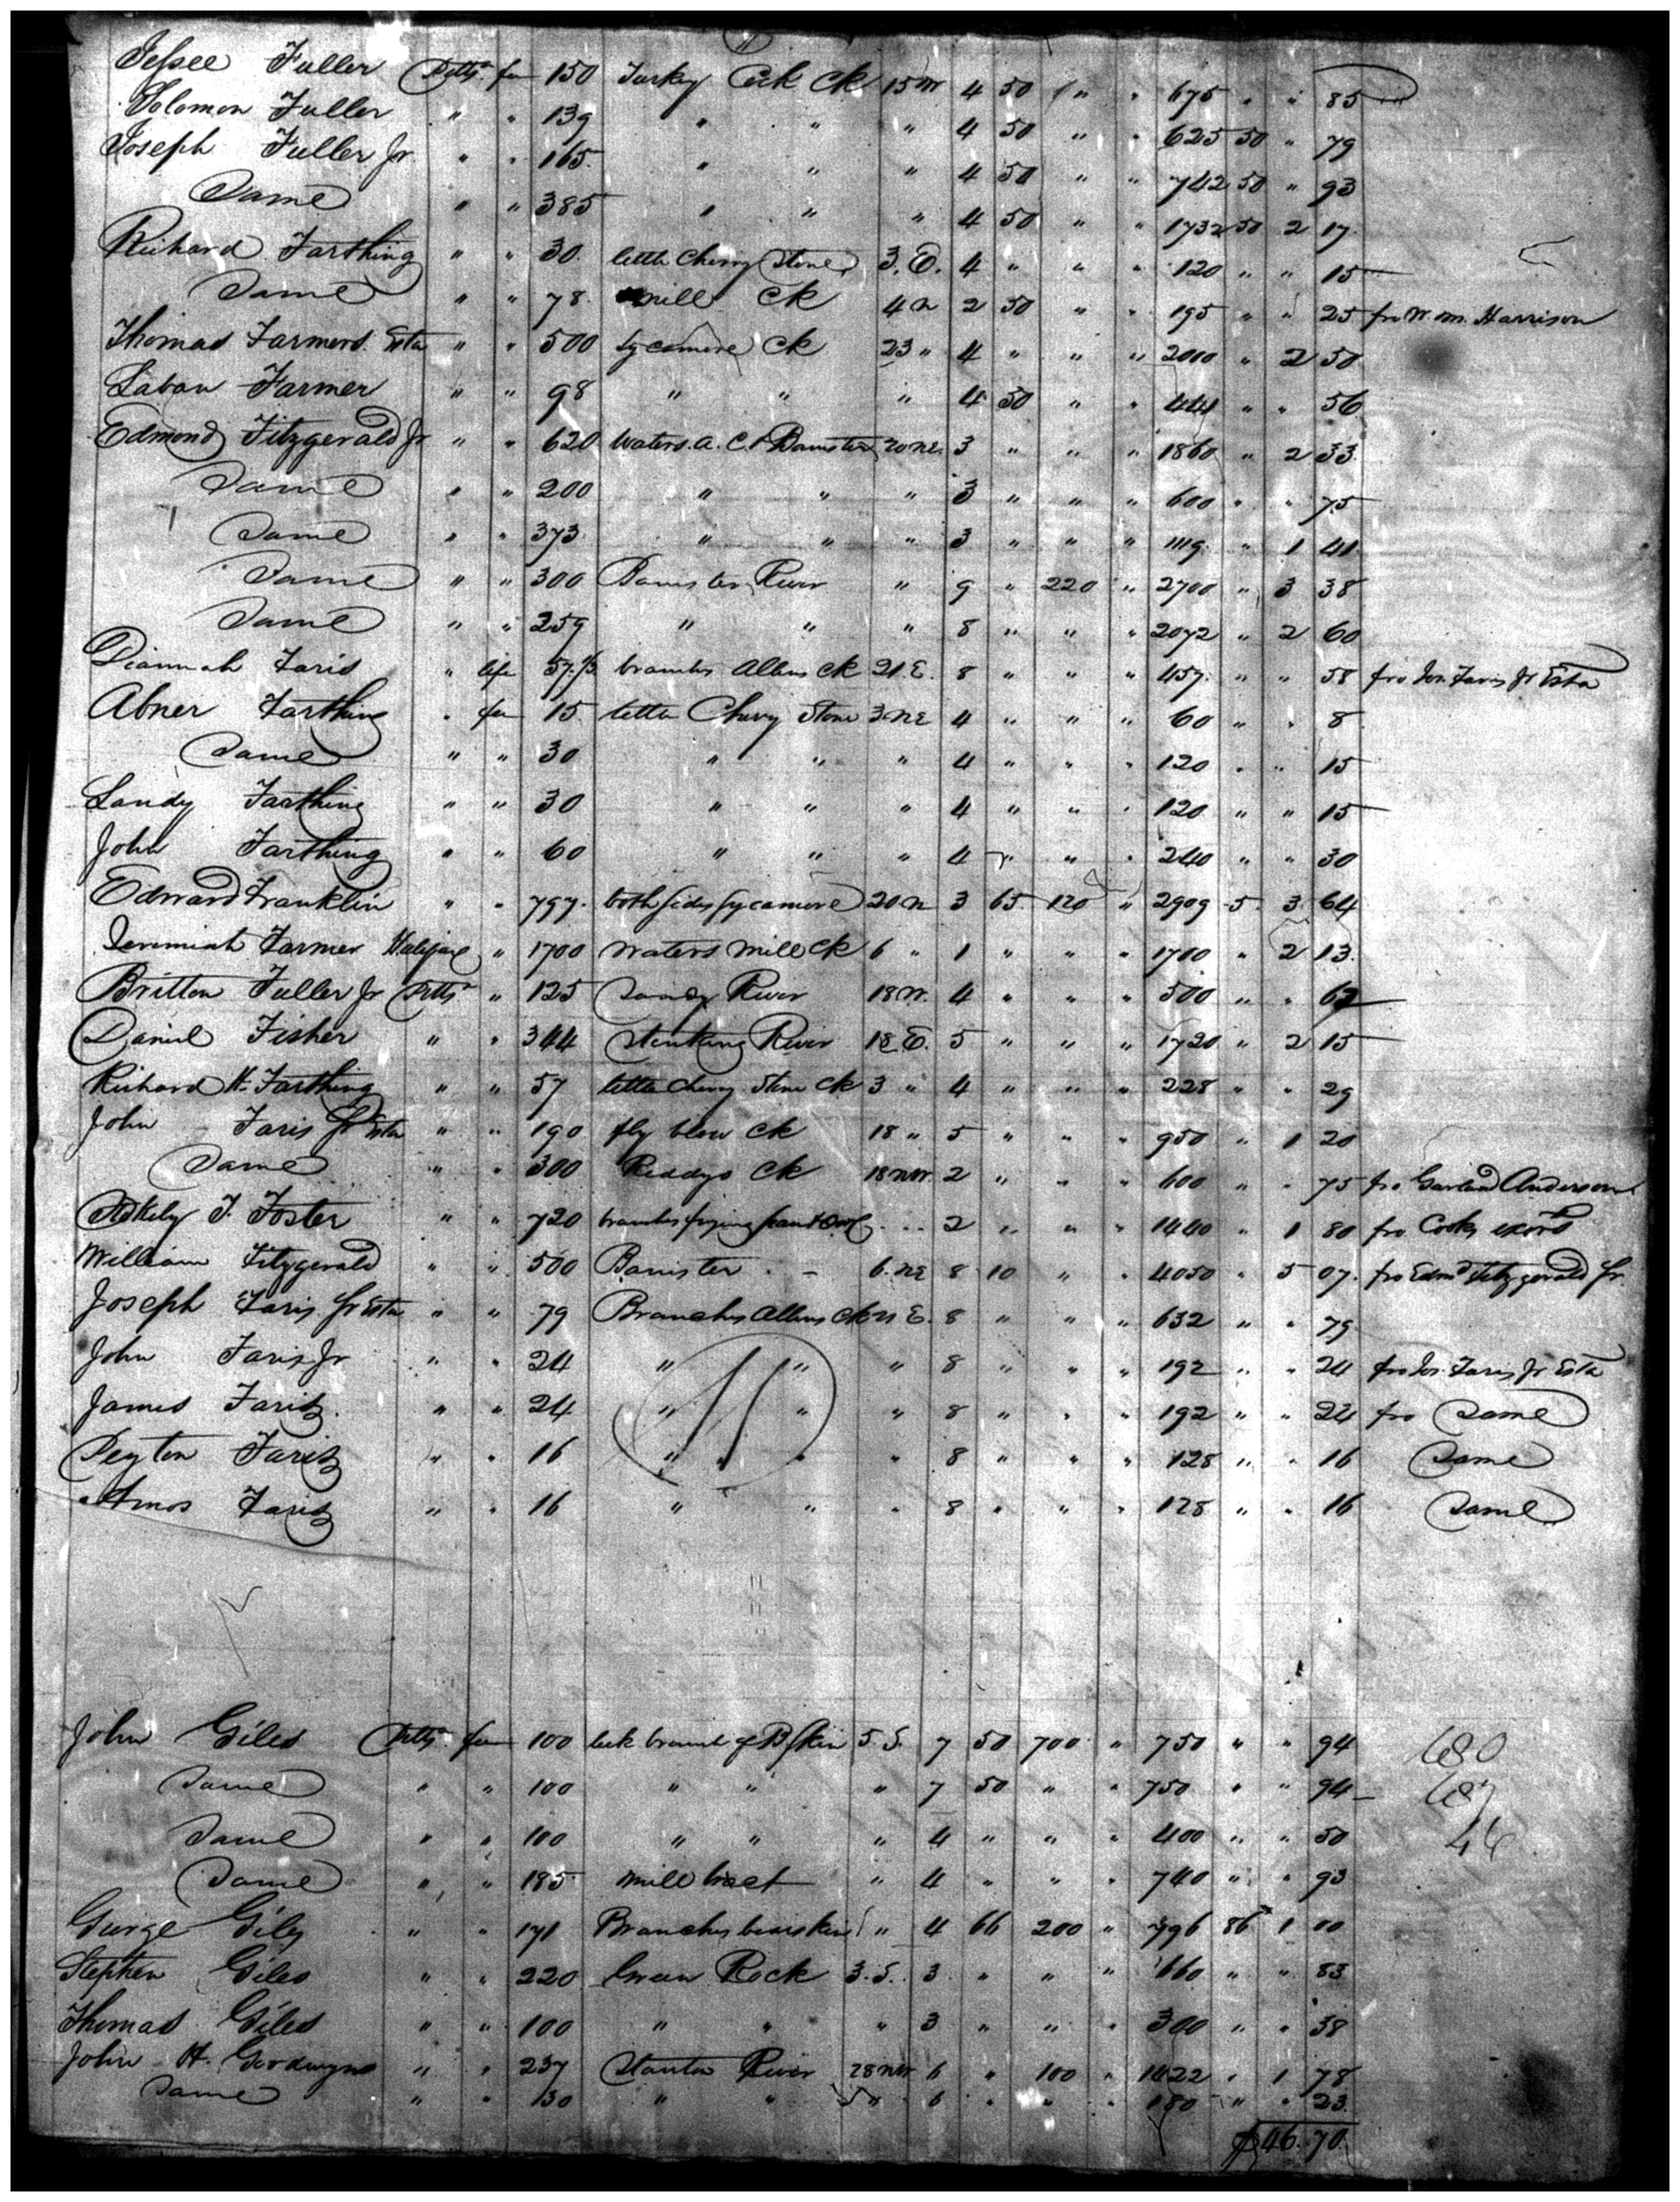 11
Jessee Fuller Pitts. fee 150 Turkey Cock Ck 15 W 4 50 " " 675 " " 85
Solomon Fuller " " 139 " " " 4 50 " " 625 50 " 79
Joseph Fuller Jr " " 165 " " " 4 50 " " 742 50 " 93
Same " " 385 " " " 4 50 " " 1732 50 2 17
Richard Farthing " " 30 little Cherry Stone 3. E. 4 " " " 120 " " 15
Same " " 78 mill Ck 4 n 2 50 " " 195 " " 25 fro W. m. Harrison
Thomas Farmers Esta " " 500 Sycamore Ck 23 " 4 " " " 2000 " 2 50
Laban Farmer " " 98 " " " 4 50 " " 441 " " 56
Edmond Fitzgerald Jr " " 620 Waters. a. C. & Banister 20 NE 3 " " " 1860 " 2 33
Same " " 200 " " " 3 " " " 600 " " 75
Same " " 373 " " " 3 " " " 1119 " 1 41
Same " " 300 Banister River " 9 " 220 " 2700 " 3 38
Same " " 259 " " " 8 " " " 2072 " 2 60
Diannah Faris " life 57 1/3 branches Allens Ck 21. E. 8 " " " 457 " " 58 fro Jos. Faris Jr Esta
Abner Farthing " fee 15 little Cherry Stone 3 NE 4 " " " 60 " " 8
Same " " 30 " " " 4 " " " 120 " " 15
Landy Farthing " " 30 " " " 4 " " " 120 " " 15
John Farthing " " 60 " " " 4 " " " 240 " " 30
Edward Franklin " " 797 both sides Sycamore 20 n 3 65 120 " 2909 5 3 64
Jeremiah Farmer Halifax " 1700 waters mill Ck 6 " 1 " " " 1700 " 2 13
Britton Fuller Jr Pitts " 125 Sandy River 18 W. 4 " " " 500 " " 62
Daniel Fisher " " 344 Stinking River 18 E. 5 " " " 1720 " 2 15
Richard W. Farthing " " 57 little Cherry Stone Ck 3 " 4 " " " 228 " " 29
John Faris Sr Esta " " 190 fly blow Ck 18 " 5 " " " 950 " 1 20
Same " " 300 Reddys Ck 18 NW. 2 " " " 600 " " 75 fro Garland Anderson
Stokely T. Foster " " 720 branches frying pan & 2 " " " 1440 " 1 80 fro Cooks exors
William Fitzgerald " " 500 Banister 6. NE 8 10 " " 4050 " 5 07 fro Edmd Fitzgerald Sr.
Joseph Faris Jr Esta " " 79 Branches Allens Ck 21 E. 8 " " " 632 " " 79
John Faris Jr " " 24 " " " 8 " " " 192 " " 24 fro Jos. Faris Jr Esta
James Faris " " 24 " " " 8 " " " 192 " " 24 fro Same
Peyton Faris " " 16 " " " 8 " " " 128 " " 16 Same
Amos Faris " " 16 " " " 8 " " " 128 " " 16 Same
11
John Giles Pitts. fee 100 lick branch of B skin 5 S. 7 50 700 " 750 " " 94 680
Same " " 100 " " " 7 50 " " 750 " " 94
Same " " 100 " " " 4 " " " 400 " " 50 46
Same " " 185 mill tract " 4 " " " 740 " " 93
George Giles " " 171 Branches bearskin " 4 66 200 " 796 86 1 00
Stephen Giles " " 220 Green Rock 3. S. 3 " " " 660 " " 83
Thomas Giles " " 100 " " " 3 " " " 300 " " 38
John H. Goodwyn " " 237 Stanton River 28 NW 6 " 100 " 1422 " 1 78
Same " " 30 " " " 6 " " " 180 " " 23
$46.70